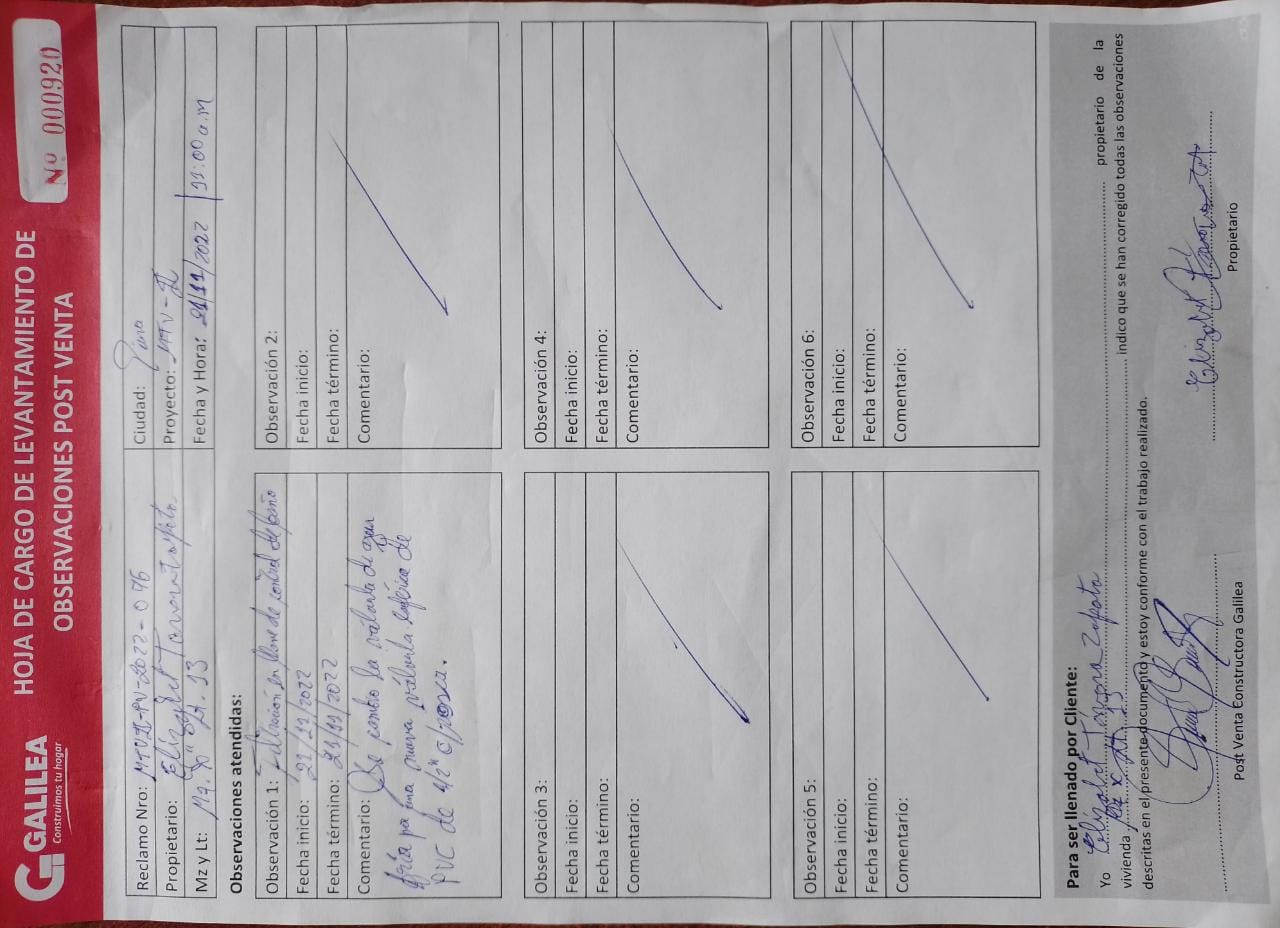 GALILEA
Construimos tu hogar
HOJA DE CARGO DE LEVANTAMIENTO DE
OBSERVACIONES POST VENTA
Nº 000920
Reclamo Nro: MTVII-PV-2022-096
Ciudad: Piura
Propietario: Elizabet Zapata
Proyecto: MTV-II
Mz y Lt: Mz. "X" Lt. 13
Fecha y Hora: 21/11/2022 11:00 a.m
Observaciones atendidas:
Observación 1: Filtración en llave de control de baño
Fecha inicio: 21/11/2022
Fecha término: 21/11/2022
Comentario: Se cambio la válvula de agua
fría por una nueva válvula esférica de
PVC de 1/2" c/rosca.
Observación 2:
Fecha inicio:
Fecha término:
Comentario:
Observación 3:
Fecha inicio:
Fecha término:
Comentario:
Observación 4:
Fecha inicio:
Fecha término:
Comentario:
Observación 5:
Fecha inicio:
Fecha término:
Comentario:
Observación 6:
Fecha inicio:
Fecha término:
Comentario:
Para ser llenado por Cliente:
Yo Elizabet Zapata propietario de la
vivienda Mz X Lt 13 indico que se han corregido todas las observaciones
descritas en el presente documento y estoy conforme con el trabajo realizado.
Post Venta Constructora Galilea
Propietario